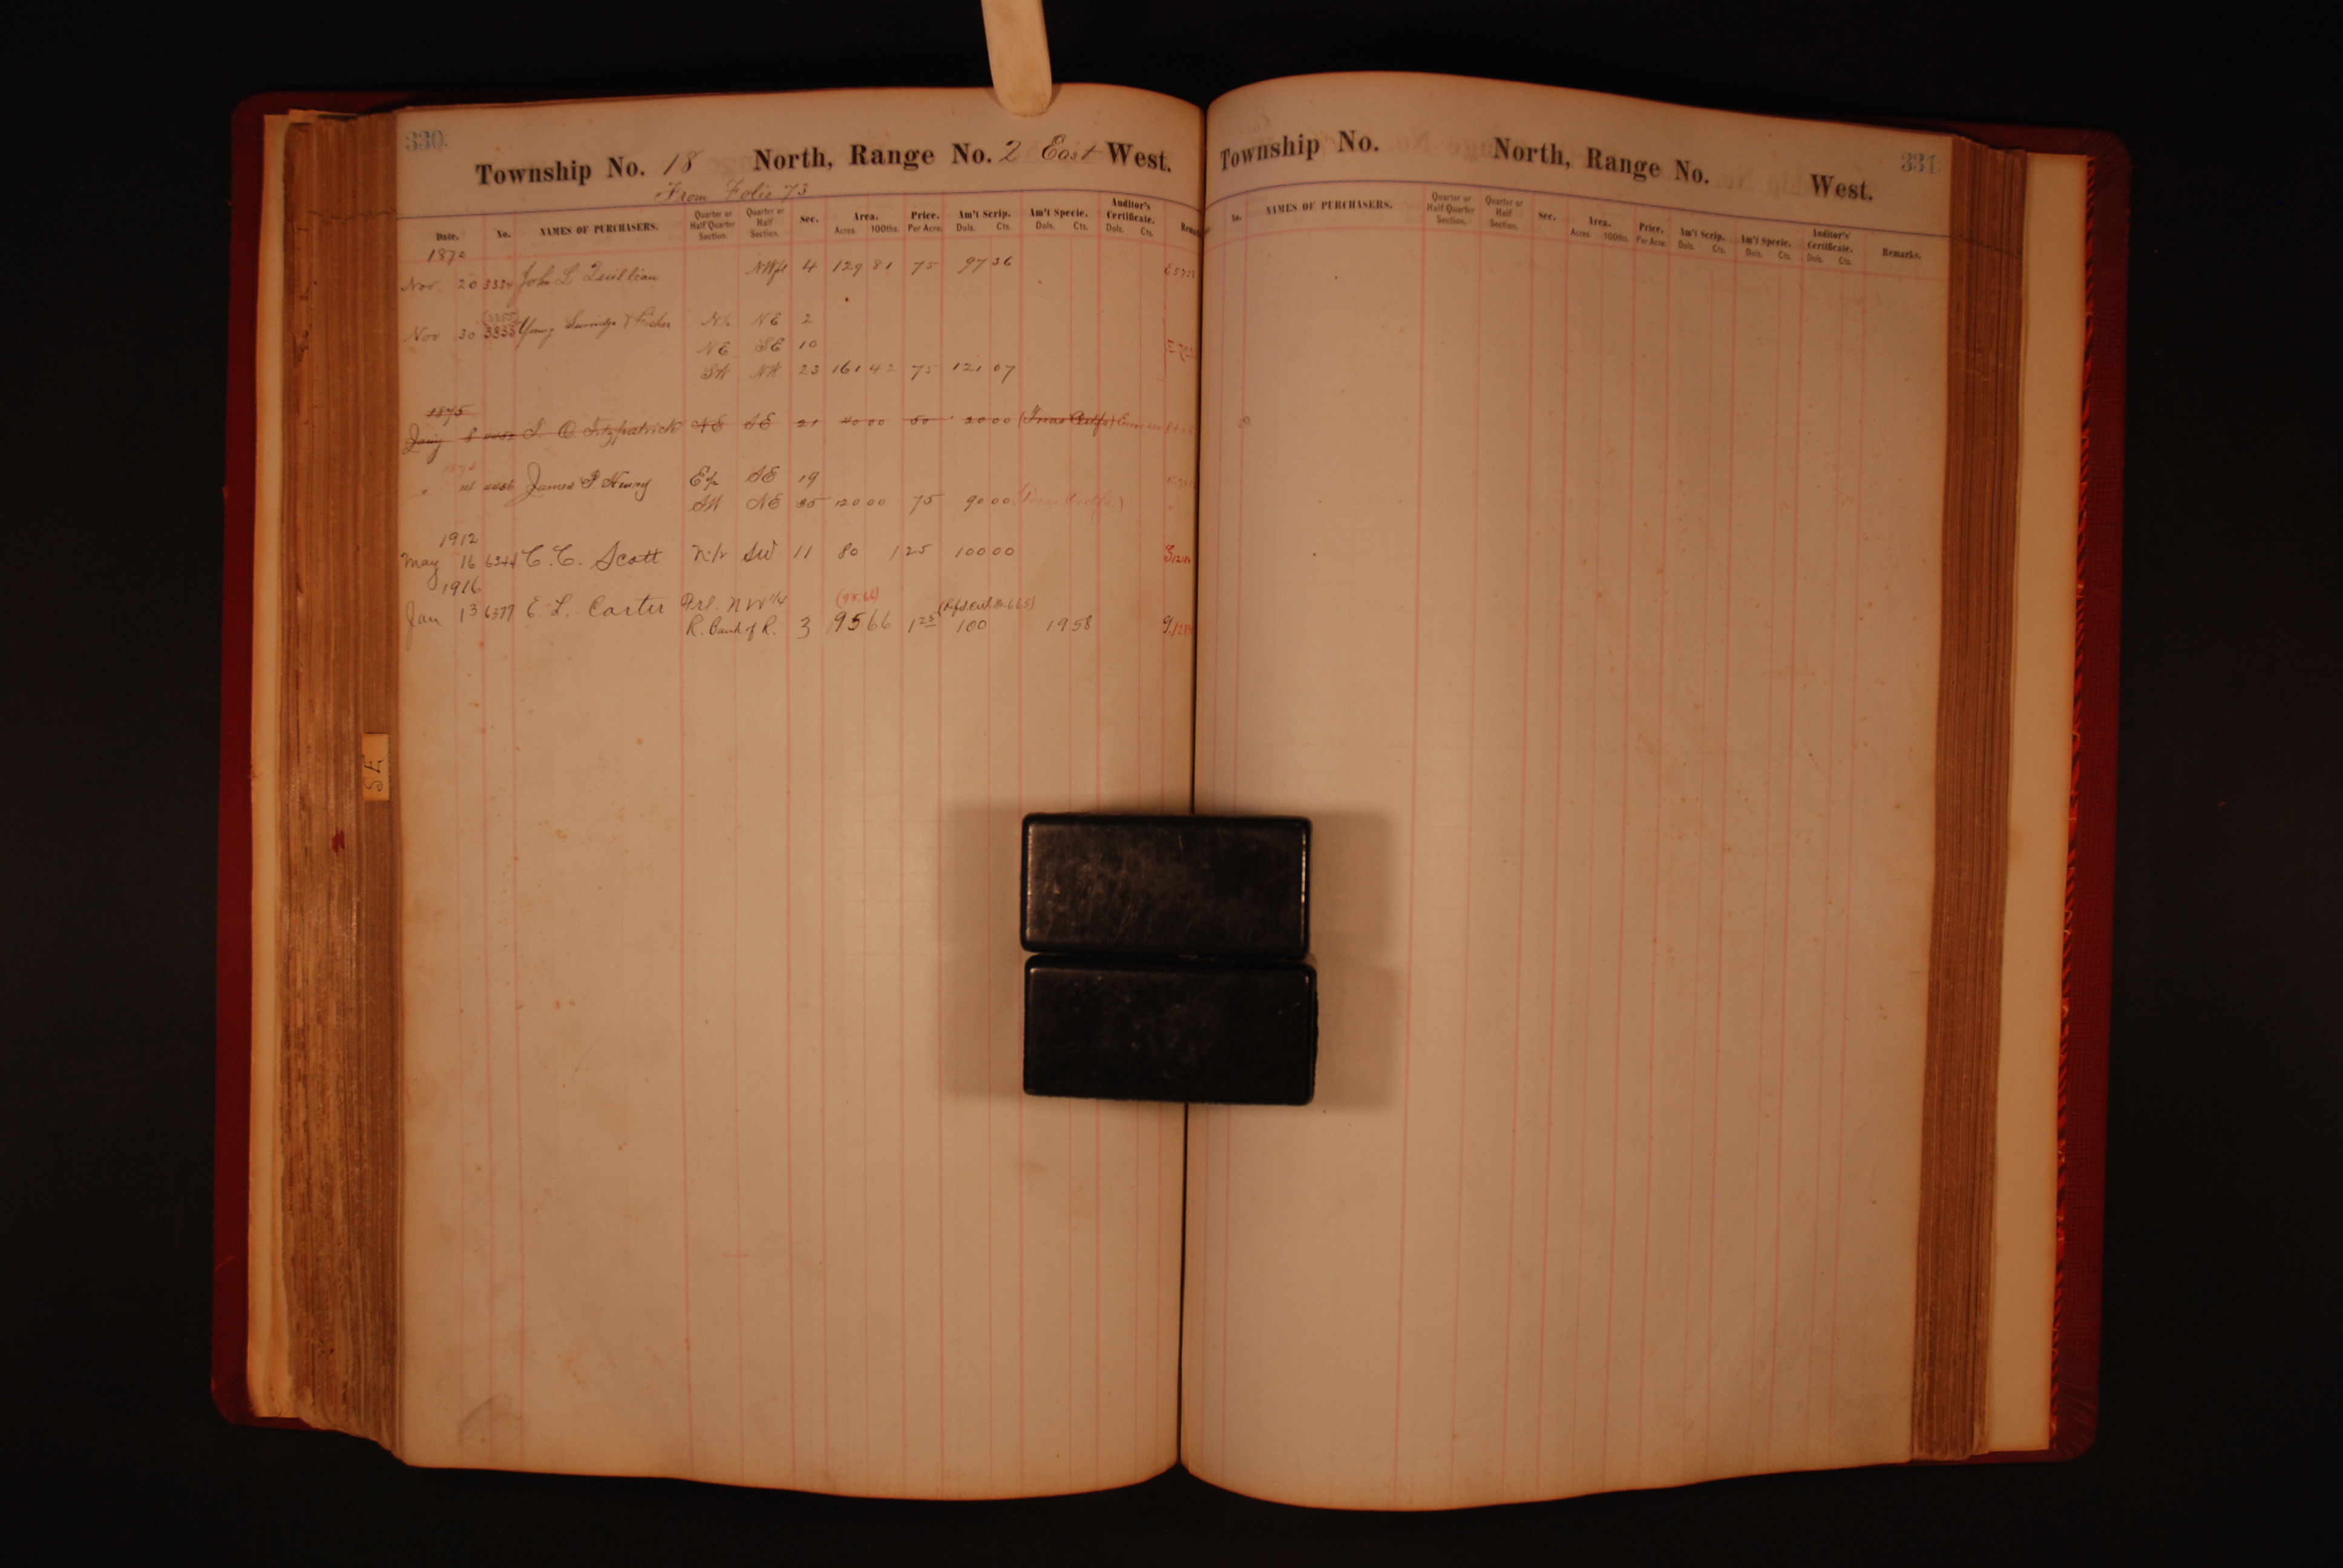 330.
Township No. 18 North, Range No. 2 East West.
From Folio 73
Date. No. NAMES OF PURCHASERS. Quarter or Half Quarter Section. Quarter or Half Section. Sec. Area. Acres 100ths. Price. Per Acre. Am't Scrip. Dols. Cts Am't Specie. Dols. Cts. Auditor's Certificate. Dols. Cts.
Nov. 20 John L 4 129 81 75 97 36
Nov 30 3335 Young & Fisher N½ NE 2
NE SE 10
SW NW 23 161 42 75 121 07
1875
8 O Fitzpatrick NE SE 21 40 00 50 20 00
James P. Henry E½ SE 19
SW NE 35 120 00 75 90 00
1912
May 16 6344 C. C. Scott N½ SW 11 80 1 25 100 00
1916
Jan 13 6377 E. L. Carter Frl. NW¼ (95.66)
R. Bank of R. 3 95 66 1 25 100 19 58
SE
Township No. North, Range No. West.
331
No. NAMES OF PURCHASERS. Quarter or Half Quarter Section. Quarter or Half Section. Sec. Area. Acres 100ths. Price. Per Acre Am't Scrip. Dols. Cts. Am't Specie. Dols. Cts. Auditor's Certificate. Dols. Cts. Remarks.